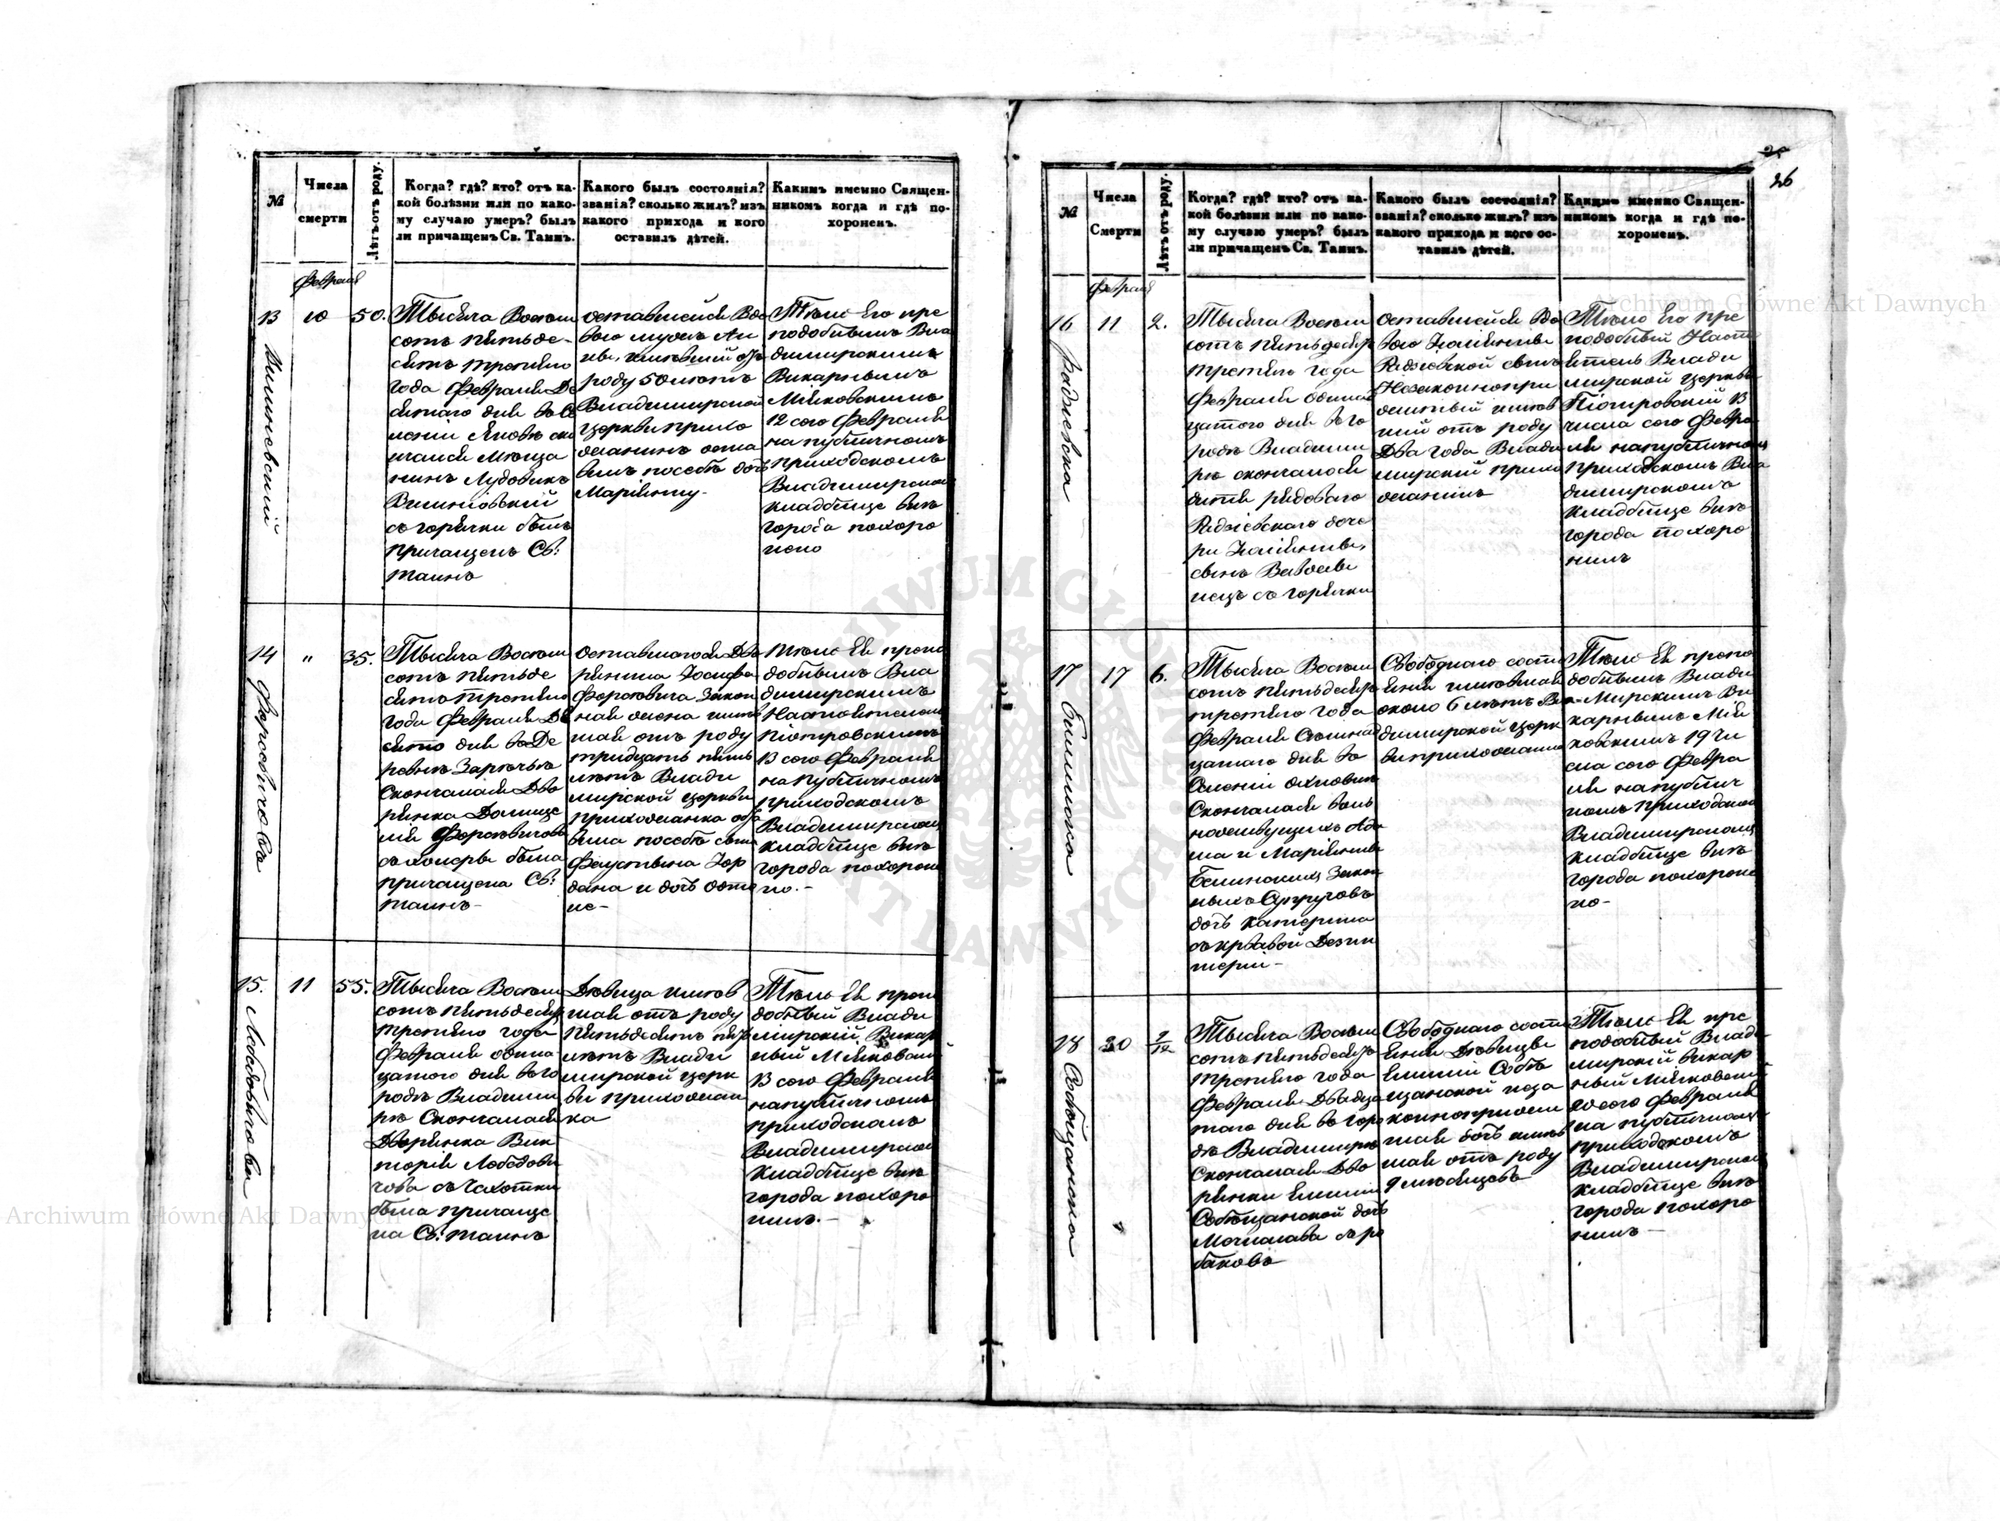 №
Числа
смерти
Лѣтъ отъ роду.
Когда? гдѣ? кто? отъ ка-
кой болѣзни или по како-
му случаю умеръ? былъ
ли причащенъ Св. Таинъ.
Какого былъ состоянія?
званія? сколько жилъ? изъ
какого прихода и кого
оставилъ дѣтей.
Какимъ именно Священ-
никомъ когда и гдѣ по-
хороненъ.
Февраля
13
10
50.
Тысяча Восем
сотъ пятьде-
сятъ третяго
года Февраля Де
сятаго дня
скон
чался Мѣща
нинъ Лудовикъ
съ горячки былъ
причащенъ Св:
таинъ
оставшейся Вдо
вою мужъ Ан
ны, имѣвшій отъ
роду 50 лѣтъ
Владимирской
церкви прихо
жанинъ оста
вилъ посебѣ дочь
Маріянну-
Тѣло Его пре
подобнымъ Вла
димирскимъ
Викарнымъ
Мѣяковскимъ
12 сего Февраля
на публичномъ
приходскомъ
Владимирском
кладбище внѣ
города похоро
нено
14
"
35.
Тысяча Восем
сотъ пятьде
сятъ третяго
года Февраля Де
сято дня въ Де
ревнѣ Зарѣчьѣ
Скончалась Дво
рянка
съ холеры была
причащена Св:
таинъ-
оставшагося Дво
рянина Іосифа
Закон
ная жена имѣв
шая отъ роду
тридцать пять
лѣтъ Влади
мирской церкви
прихожанка оста
вила посебѣ сына
и дочь
Тѣло Ея препо
добнымъ Вла
димирскимъ
Настоятелемъ
Піотровскимъ
13 сего Февраля
на публичномъ
приходскомъ
Владимирском
кладбище внѣ
города похороне
но.-
15.
11
55.
Тысяча Восем
сотъ пятьдесят
третяго года
Февраля одина
цатого дня въ го
родѣ Владими
рѣ Скончалася
Дворянка Вик
торія Лободови
чова съ Чахотки
была причаще
на Св: таинъ
Дѣвица имѣв
шая отъ роду
пятьдесятъ пять
лѣтъ Влади
мирской церк
ви прихожан
ка
Тѣло Ея препо
добный Влади
мирскій Викар
ный Мѣяковскій
13 сего Февраля
на публичномъ
приходскомъ
Владимирском
кладбище внѣ
города похоро
нилъ.-
26
№
Числа
Смерти
Лѣтъ отъ роду.
Когда? гдѣ? кто? отъ ка-
кой болѣзни или по како-
му случаю умеръ? былъ
ли причащенъ Св. Таинъ.
Какого былъ состоянія?
званія? сколько жилъ? изъ
какого прихода и кого ос-
тавилъ дѣтей.
Какимъ именно Священ-
никомъ когда и гдѣ по-
хороненъ.
Февраля
16
11
2.
Тысяча Восем
сотъ пятьдесят
третяго года
Февраля одина
цатого дня въ го
родѣ Владими
рѣ скончалося
дитя рядового
Радзіевскаго доче
ри
сынъ
съ горячки
оставшейся Вдо
вою
Радзіевской сынъ
Незаконнопри
житый имѣв
шій отъ роду
Два года Влади
мирскій прихо
жанинъ
Тѣло Его пре
подобный Насто
ятель Влади
мирской церкви
Піотровскій 13
числа сего Февра
ля на публичном
приходскомъ Вла
димирскомъ
кладбище внѣ
города похоро
нилъ
17
17
6.
Тысяча Восем
сотъ пятьдесят
третяго года
Февраля Семнад
цатого дня въ
Селеніи
Скончалася воль
ножившущихъ Ада
ма и Маріянны
Закон
ныхъ Супруговъ
дочь Катерина
съ кровавой Дезин
теріи-
Свободнаго состо
янія имѣвшая
около 6 лѣтъ Вла
димирской церк
ви прихожанка
Тѣло Ея препо
добнымъ Влади
мирскимъ Ви
карнымъ Мѣя
ковскимъ 19 чи
сла сего Февра
ля на публич
номъ приходском
Владимирском
кладбище внѣ
города похороне
но-
18
20
9/12
Собѣщанская
Тысяча Восем
сотъ пятьдесят
третяго года
Февраля Двадца
таго дня въ горо
дѣ Владимирѣ
Скончалася Дво
рянки Емиліи
Собѣщанской дочь
Свободнаго состо
янія Дѣвицы
Емиліи Собѣ
щанской неза
конноприжи
тая дочь имѣв
шая отъ роду
9 мѣсяцовъ
Тѣло Ея пре
подобный Влади
мирскій викар
ный Мѣяковскій
20 сего Февраля
на публичном
приходскомъ
Владимирском
кладбище внѣ
города похоро
нилъ-
Archiwum Główne Akt Dawnych
Archiwum Główne Akt Dawnych
ARCHIWUM GŁÓWNE AKT DAWNYCH